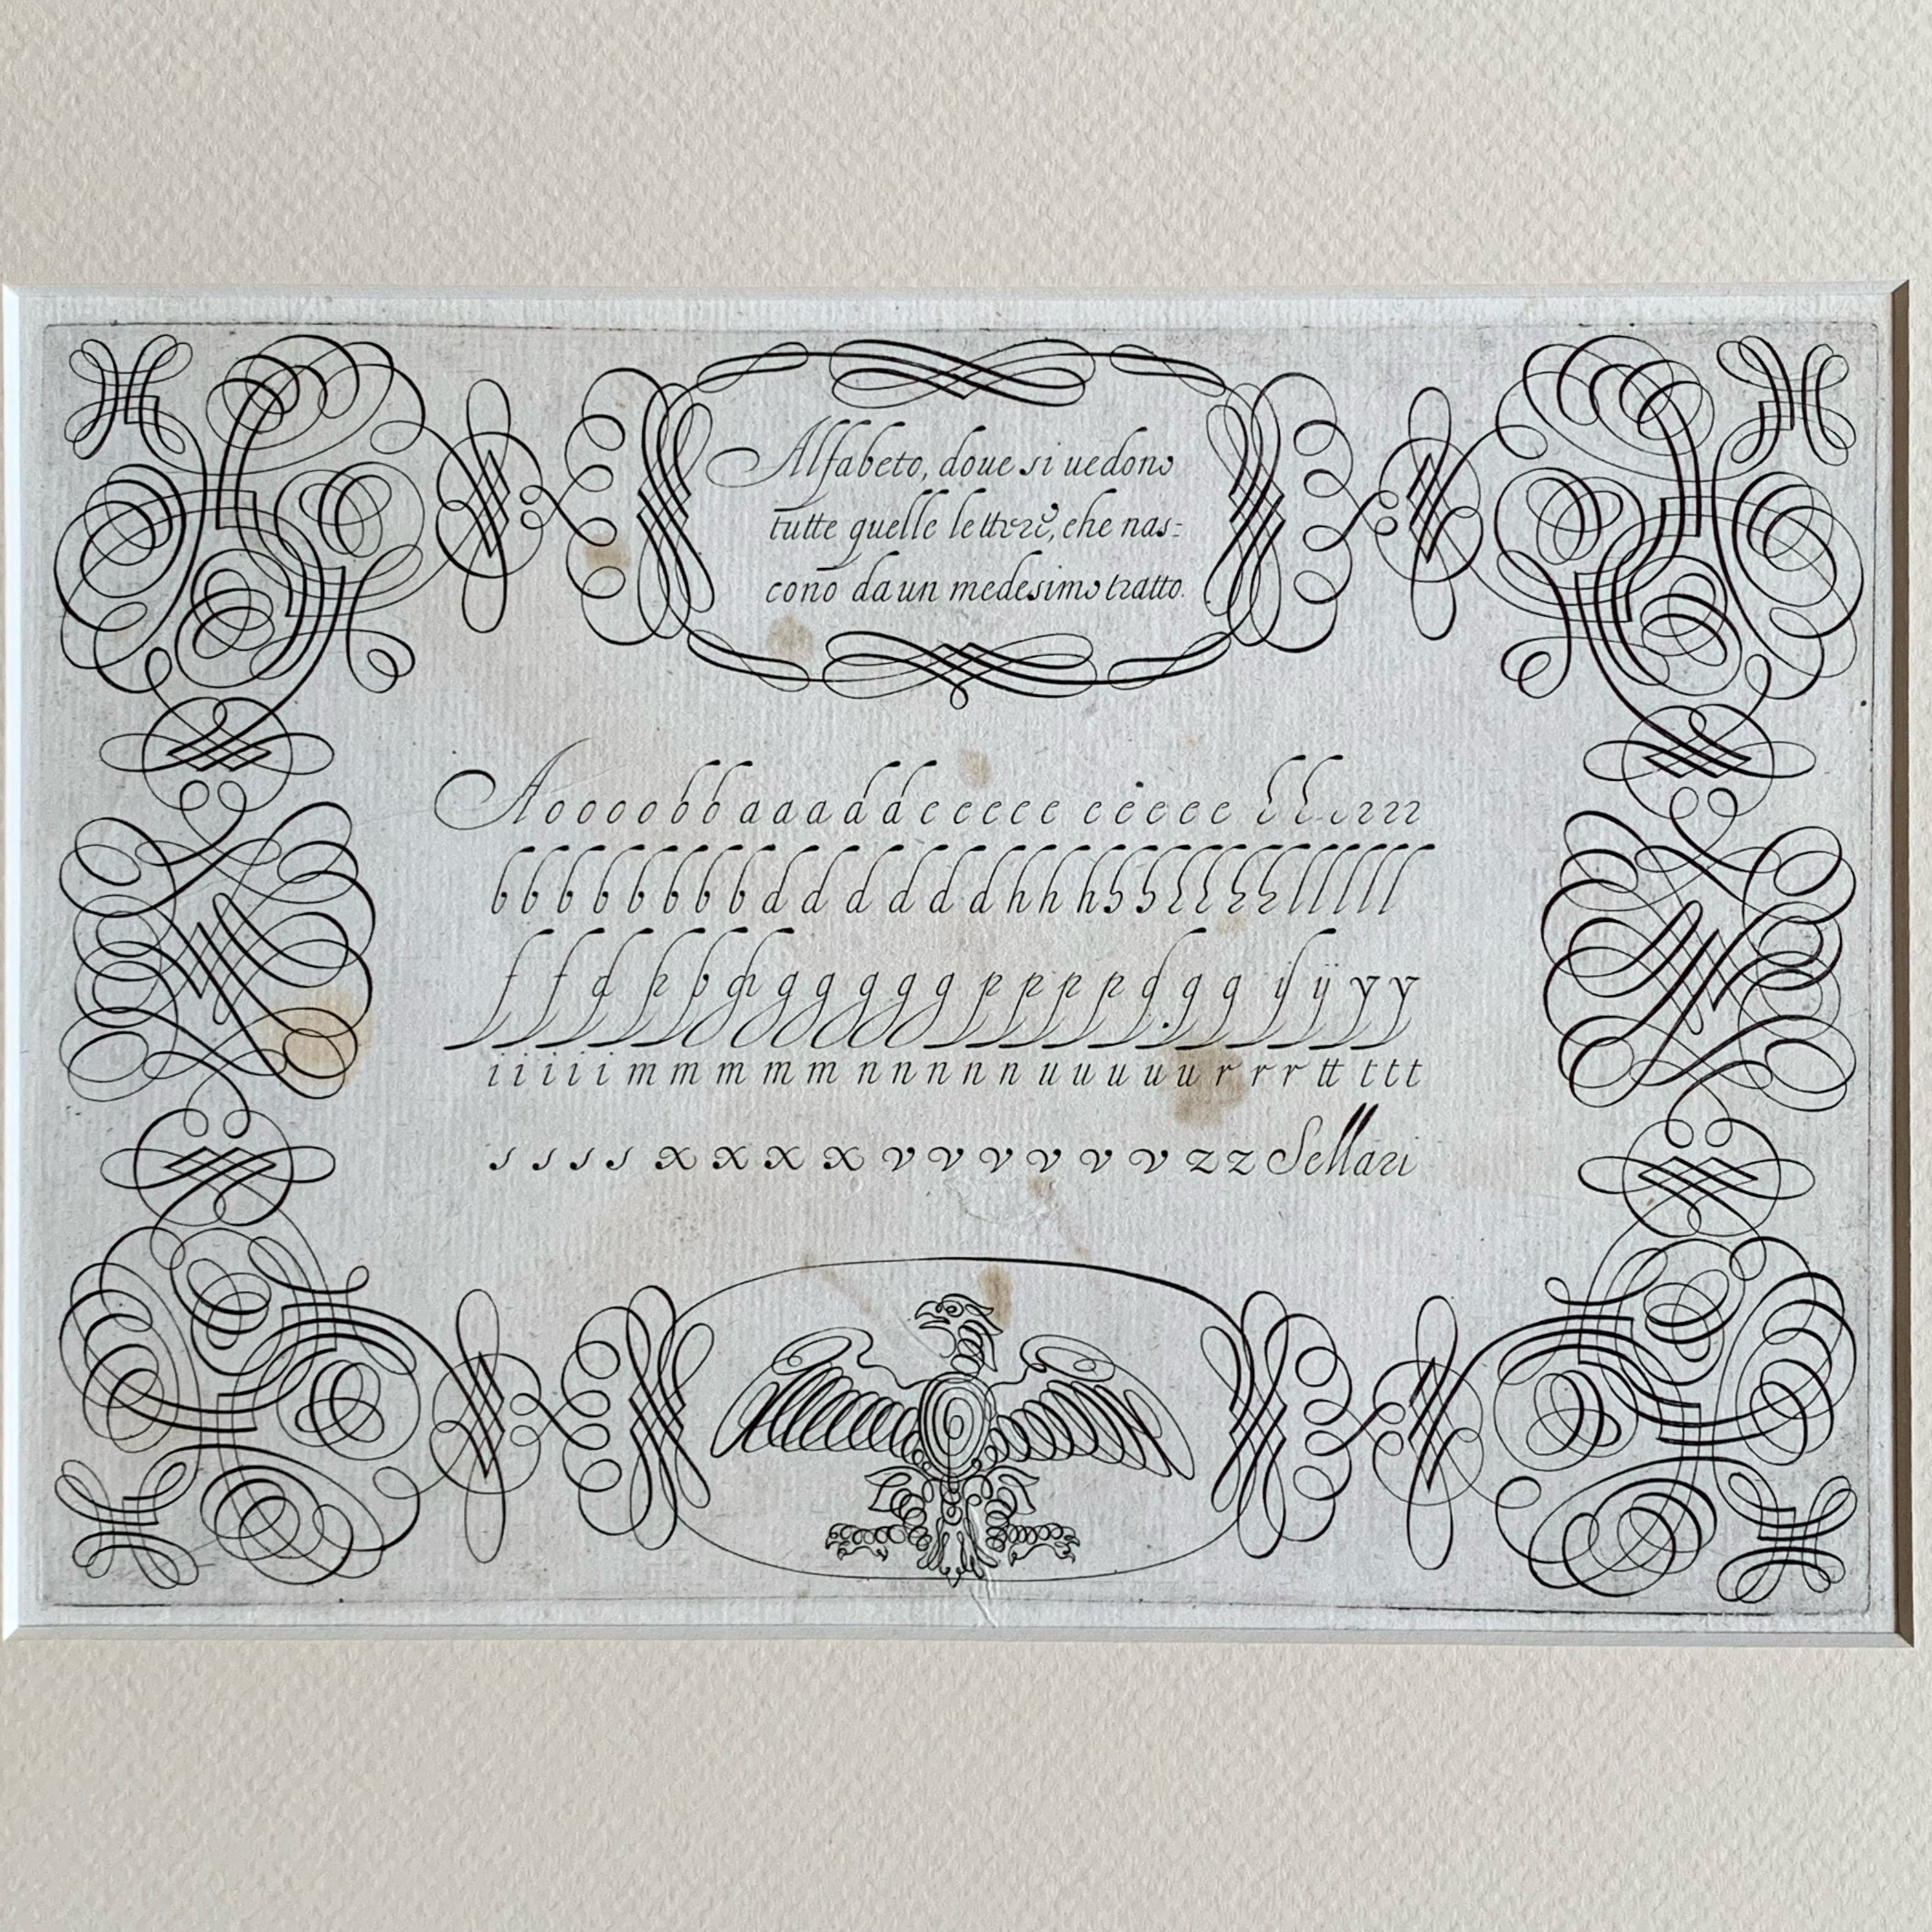 Alfabeto, doue si uedono
tutte quelle lettere, che nas-
cono da un medesimo tratto.
A o o o o b b a a a d d c c c c c e e e e e l l r r r r
b b b b b b b b d d d d d d h h h
f f d k b h g g g g g p p p p d g g y ÿ y y
i i i i i m m m m m n n n n n u u u u u r r r tt t t t
s s s s x x x x v v v v v v z z Sellari